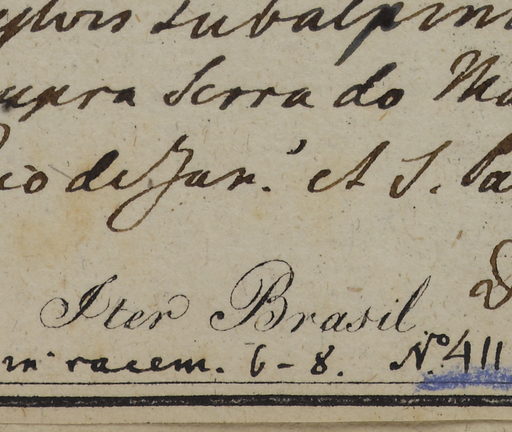 sylvis subalpin
supra Serra do Ma
Rio de Jan.' et S. Pa
Iter Brasil
in racem. 6-8. No. 411